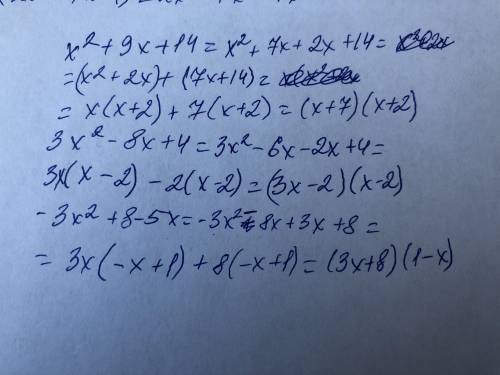 x² + 9x + 14 = x² + 7x + 2x + 14 =
= (x² + 2x) + (7x + 14) =
= x(x+2) + 7(x+2) = (x+7)(x+2)
3x² - 8x + 4 = 3x² - 6x - 2x + 4 =
3x(x - 2) - 2(x - 2) = (3x - 2)(x - 2)
- 3x² + 8 - 5x = -3x² - 8x + 3x + 8 =
= 3x(-x + 1) + 8(-x + 1) = (3x + 8)(1 - x)